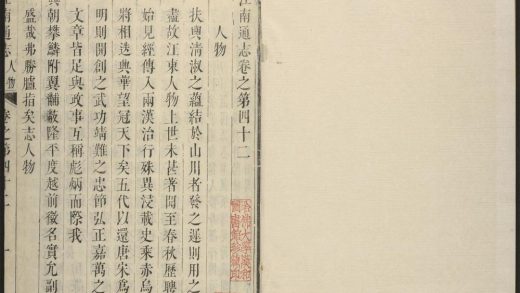 江南通志卷之第四十二
哈佛大學漢和
圖書館珍藏印
人物
扶輿清淑之蘊結於山川者發之遲則用之
盡故江東人物上世未甚著聞至春秋歷聘
始見經傳入兩漢治行殊異浸載史乘赤烏
將相迭興華望冠天下矣五代以還唐宋爲
明則開創之武功靖難之忠節弘正嘉萬之
文章皆足與政事互稱彪炳而際我
朝攀鱗附翼黼黻隆平度越前徽名實允副
盛哉弗勝臚指矣志人物
江南通志 人物 卷之第四十二 一